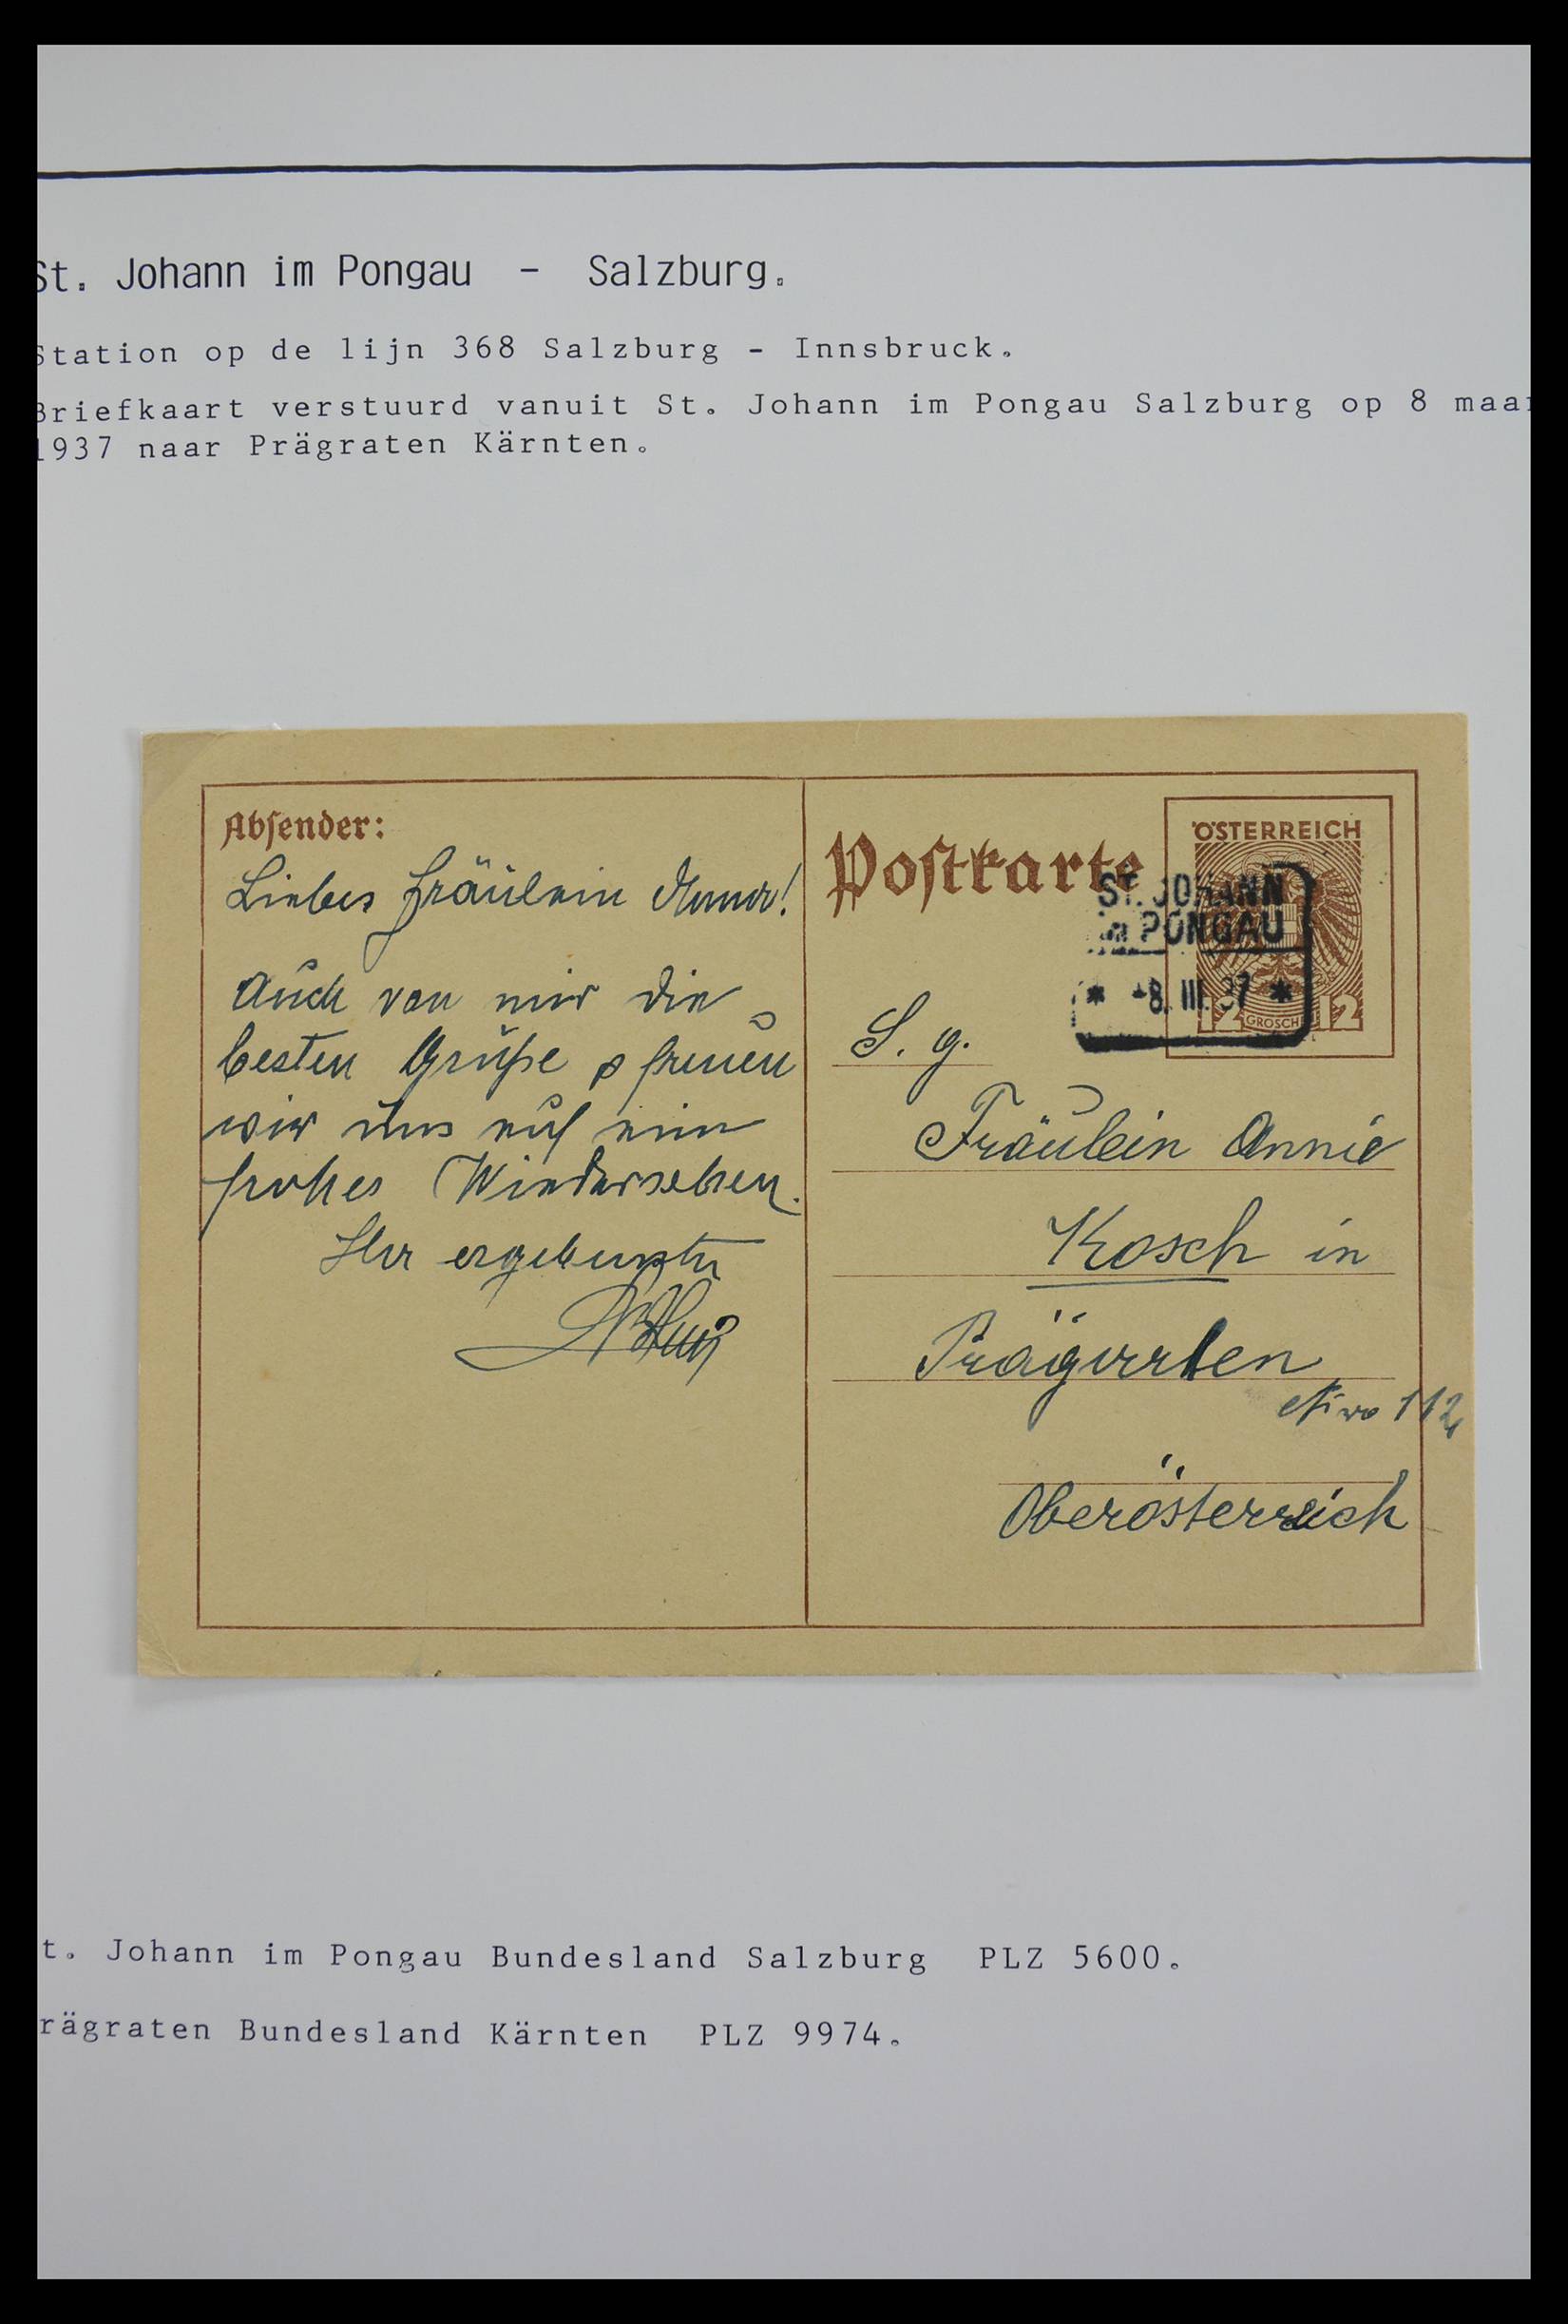 St. Johann im Pongau - Salzburg.
Station op de lijn 368 Salzburg - Innsbruck.
Briefkaart verstuurd vanuit St. Johann im Pongau Salzburg op 8 maar
1937 naar Prägraten Kärnten.
Absender:
Liebes Fräulein
Auch von mir die
besten Grüße & freuen
wir uns auf ein
frohes Wiedersehen.
Ihr ergebenster
Postkarte
ÖSTERREICH
12 GROSCHEN 12
ST. JOHANN
im PONGAU
* -8. III. 37 *
S. g.
Fräulein Annie
Kosch in
Prägarten
Nro 112
Oberösterreich
t. Johann im Pongau Bundesland Salzburg PLZ 5600.
rägraten Bundesland Kärnten PLZ 9974.